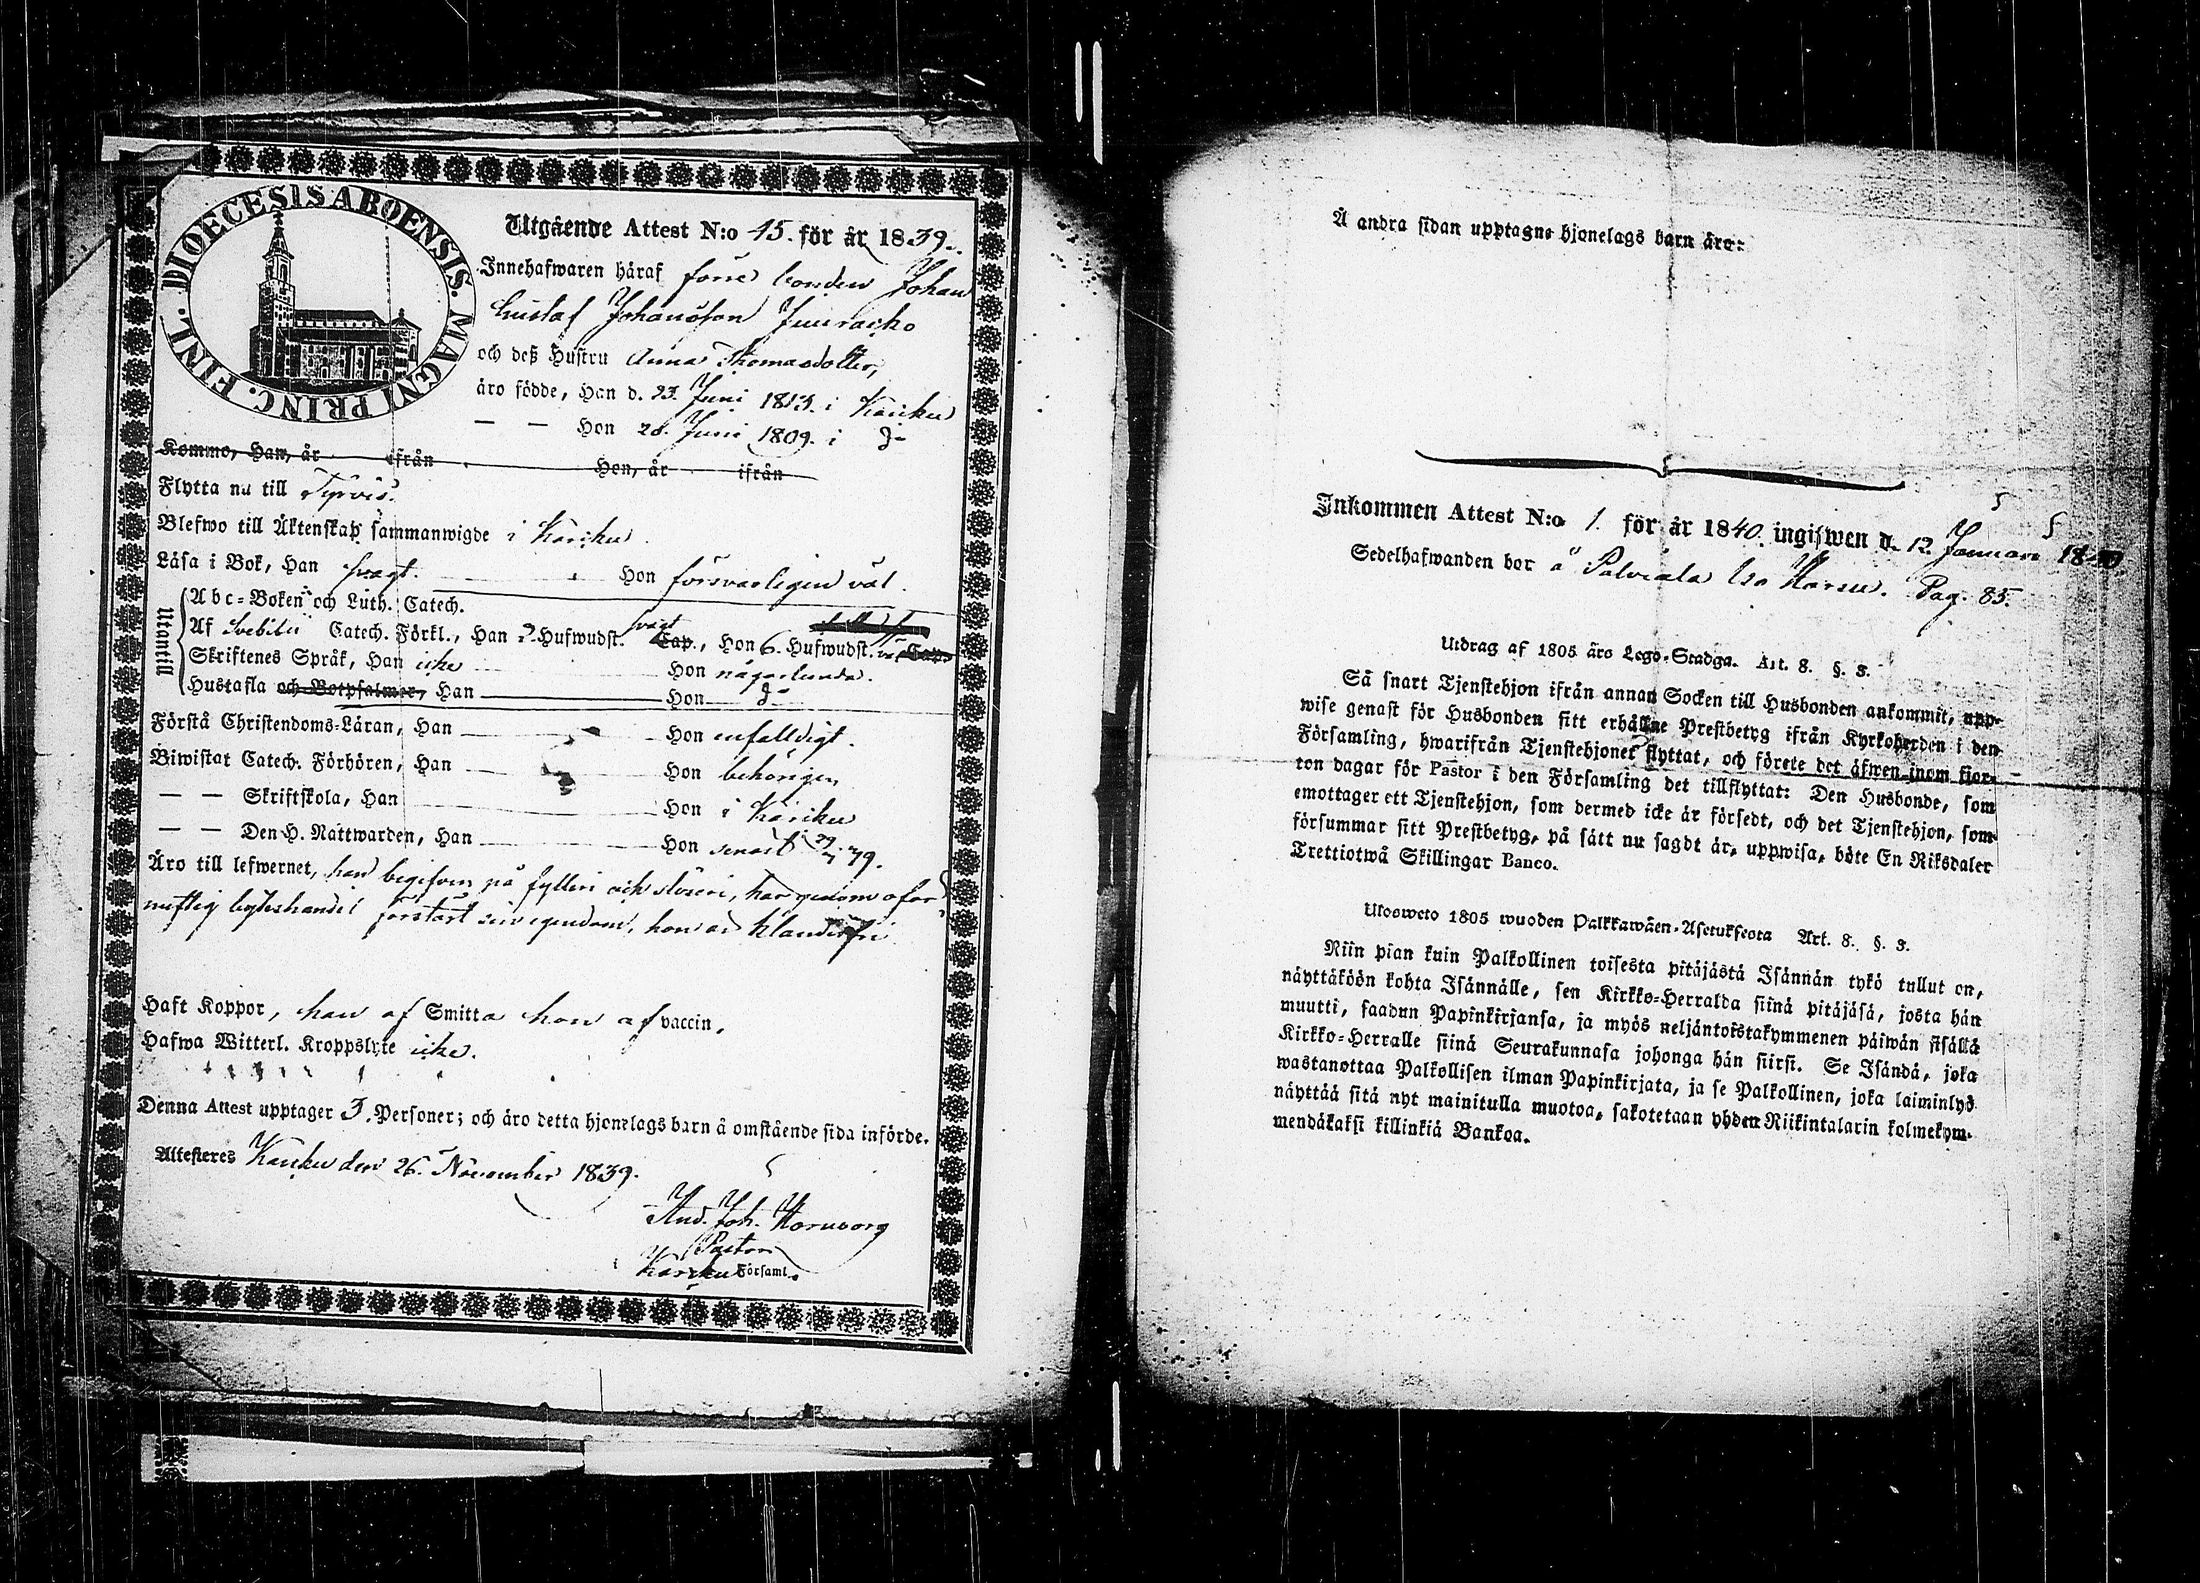 DIOECESIS ABOENSIS. MAGNI PRINC. FINL.
Utgående Attest N:o 15. för år 1839.
Innehafwaren häraf förre bonden Johan
Gustaf Johansson Juuracko
och deß Hustru Anna Thomasdotter,
äro födde, Han d. 23. Juni 1813. i Karcku
— — Hon 28. Juni 1809. i
Kommo, Han, år ifrån Hon, år ifrån
Flytta nu till Tyrvis.
Blefwo till Äktenskap sammanwigde i Karcku.
Läsa i Bok, Han svagt. Hon försvarligen väl.
Utantill
Abc-Boken och Luth. Catech.
Af Svebilii Catech. Förkl., Han 2. Hufwudst. svagt Cap., Hon 6. Hufwudst. Cap.
Skriftenes Språk, Han icke Hon någorlunda.
Hustafla och Botpsalmer, Han Hon
Förstå Christendoms-Läran, Han Hon enfalldigt.
Biwistat Catech. Förhören, Han Hon behörigen
— — Skriftskola, Han Hon i Karcku
— — Den H. Nattwarden, Han Hon senast 39.
Äro till lefwernet, han begifven på fylleri och slöseri, har genom oför
nuftig byteshandel förstört sin egendom, hon är klanderfri
Haft Koppor, han af Smitta hon af vaccin.
Hafwa Witterl. Kroppslyte icke.
Denna Attest upptager 3. Personer; och äro detta hjonelags barn å omstående sida införde.
Attesteres Karcku den 26. November 1839.
And. Joh. Hornborg
Pastor
Karcku Församl.
Å andra sidan upptagne hjonelags barn äro:
Inkommen Attest N:o 1. för år 1840. ingifwen d. 12 Januari 1840
Sedelhafwanden bor å Palviala Iso Karsu. Pag. 85.
Utdrag af 1805 års Lego-Stadga. Art. 8. §. 3.
Så snart Tjenstehjon ifrån annan Socken till Husbonden ankommit, upp-
wise genast för Husbonden sitt erhållne Prestbetyg ifrån Kyrkoherden i den
Församling, hwarifrån Tjenstehjonet flyttat, och förete det äfwen inom fjor-
ton dagar för Pastor i den Församling det tillflyttat: Den Husbonde, som
emottager ett Tjenstehjon, som dermed icke är försedt, och det Tjenstehjon, som
försummar sitt Prestbetyg, på sätt nu sagdt är, uppwisa, böte En Riksdaler
Trettiotwå Skillingar Banco.
Ulosweto 1805 wuoden Palkkawäen-Asetuksesta Art. 8. §. 3.
Niin pian kuin Palkollinen toisesta pitäjästä Isännän tykö tullut on,
näyttäköön kohta Isännälle, sen Kirkko-Herralda siinä pitäjäsä, josta hän
muutti, saadun Papinkirjansa, ja myös neljäntoistakymmenen päiwän sisällä
Kirkko-Herralle siinä Seurakunnasa johonga hän siirsi. Se Isändä, joka
wastanottaa Palkollisen ilman Papinkirjata, ja se Palkollinen, joka laiminlyö
näyttää sitä nyt mainitulla muotoa, sakotetaan yhden Riikintalarin kolmekym-
mendäkaksi killinkiä Bankoa.